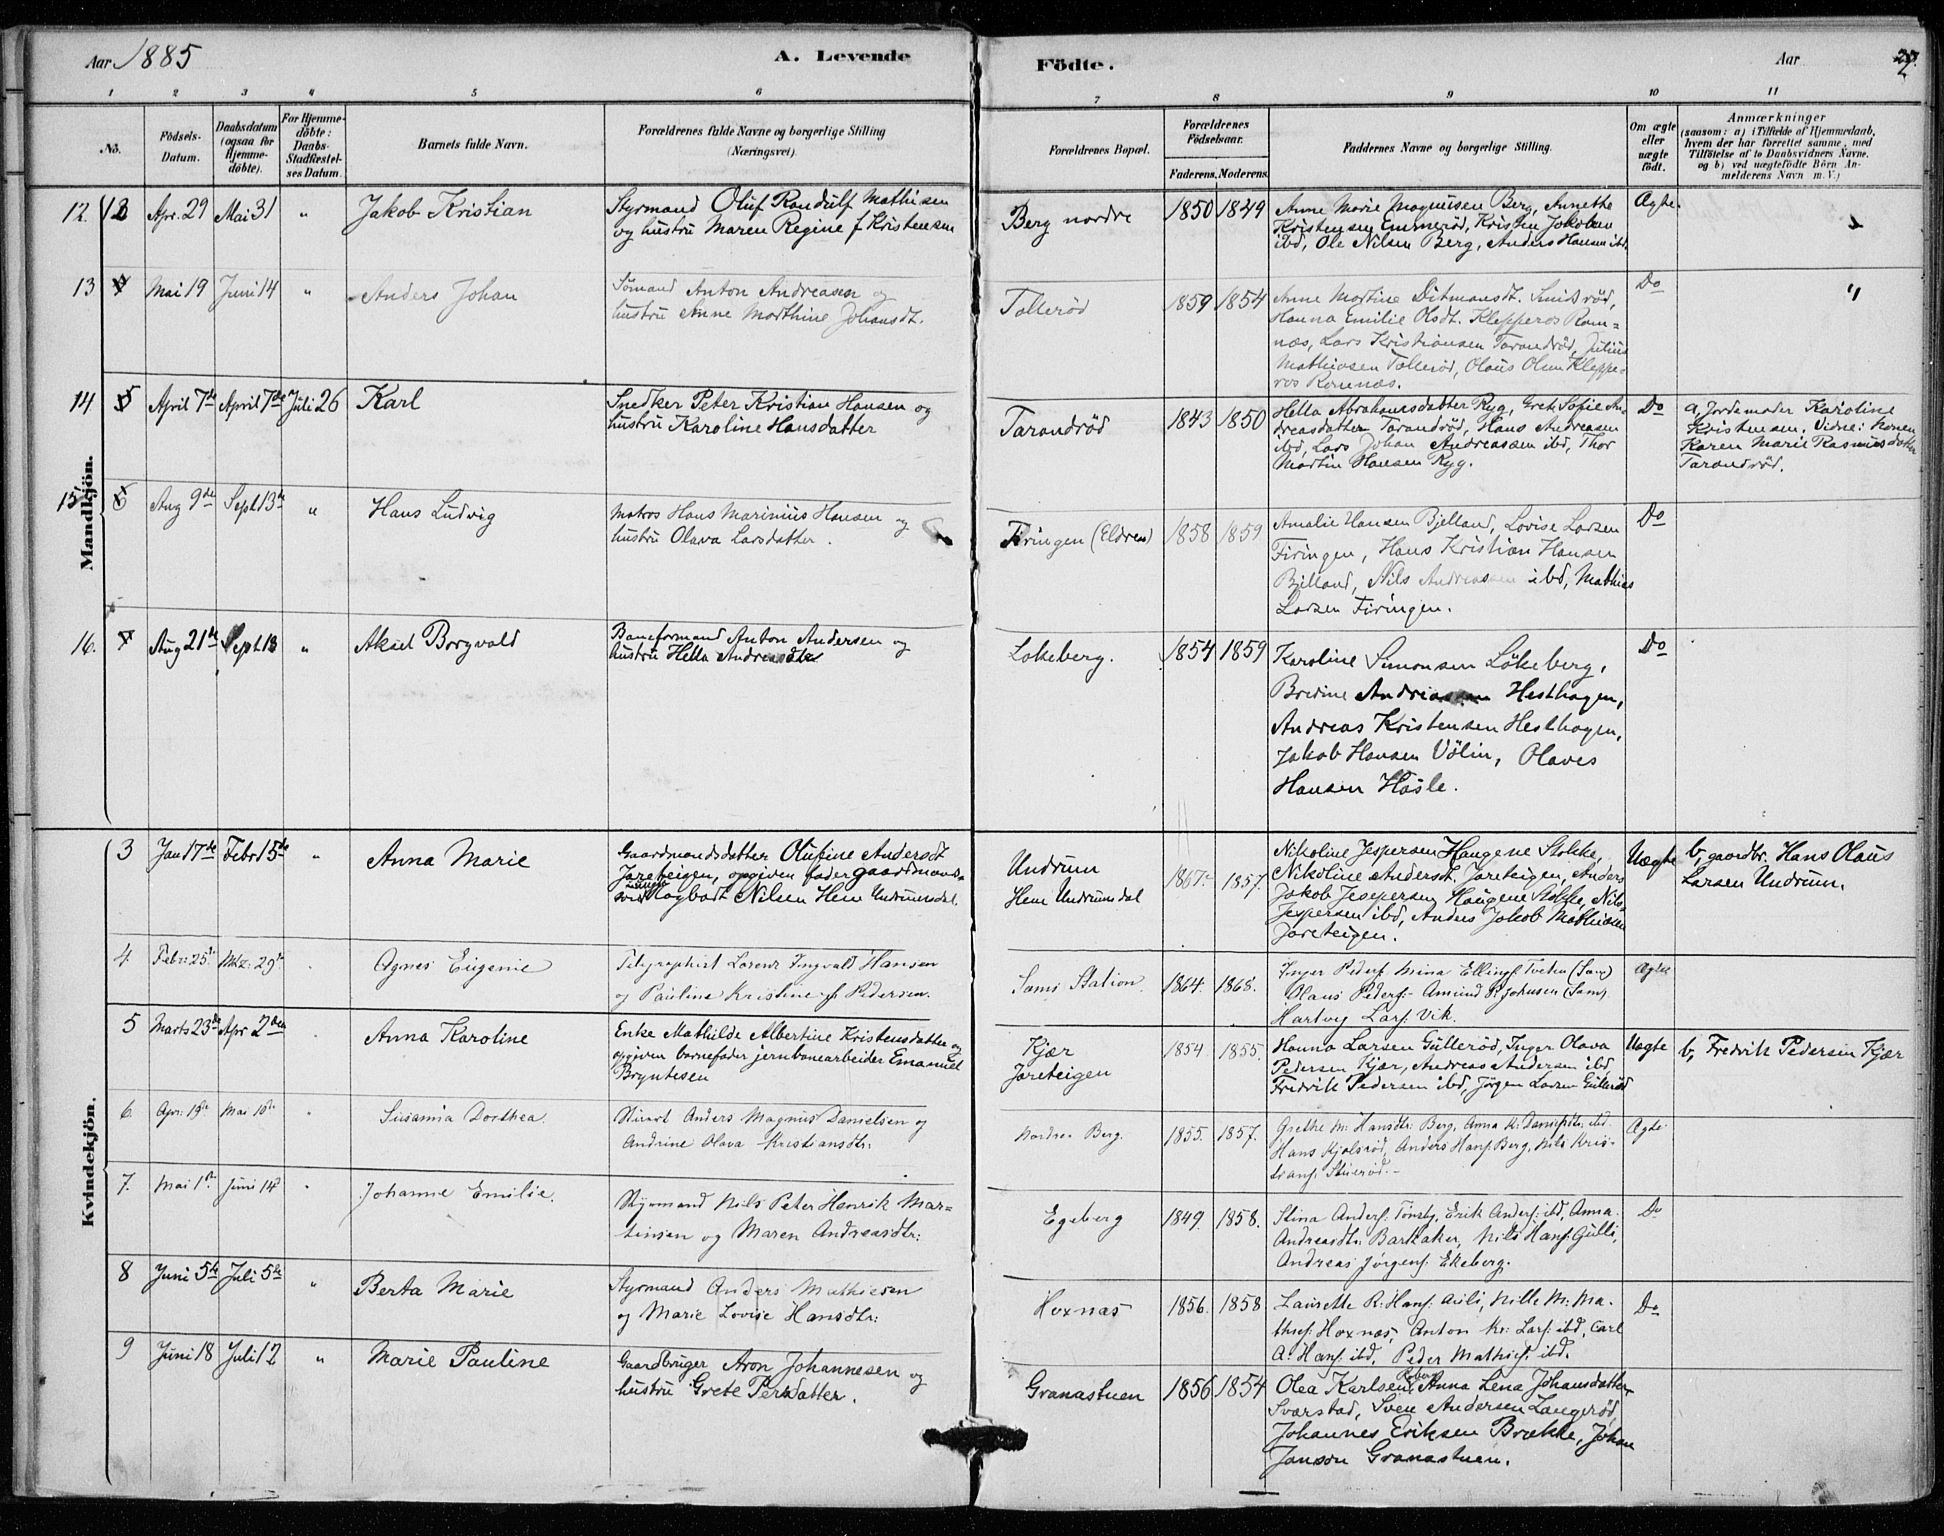 Aar 1885
A. Levende
Födte.
Aar
27.
1 2 3 4 5 6 7 8 9 10 11
No.
Födsels-Datum.
Daabsdatum (ogsaa for Hjemme-döbte).
For Hjemme-döbte: Daabs-Stadfæstel-ses Datum.
Barnets fulde Navn.
Forældrenes fulde Navne og borgerlige Stilling (Næringsvei).
Forældrenes Bopæl.
Forældrenes Födselsaar.
Faderens. Moderens.
Faddernes Navne og borgerlige Stilling.
Om ægte eller uægte födt.
Anmærkninger
(saasom: a) i Tilfælde af Hjemmedaab,
hvem der har forrettet samme, med
Tilföielse af to Daabsvidners Navne,
og b) ved uægtefödte Börn An-
melderens Navn m. V.)
Mandkjön.
12. Apr. 29 Mai 31 " Jakob Kristian
Styrmand Oluf Randulf Mathisen
og hustru Maren Regine f Kristensen
Berg nordre 1850 1849
Anne Marie Magnussen Berg, Annette
Kristensen Emmerød, Kristen Jakobsen
ibd, Ole Nilsen Berg, Anders Hansen ibd.
Ægte.
13 Mai 19 Juni 14 " Anders Johan
Sømand Anton Andreasen og
hustru Anne Marthine Johansdt.
Tollerød 1859 1854
Anne Martine Ditmansdt. Smidsrød,
Hanna Emilie Olsdt. Klepperos Ram-
næs, Lars Kristiansen Tarandrød, Julius
Mathiasen Tollerød, Olaus Olsen Kleppe-
ros Ramnæs.
Do "
14 5 April 7de April 7de Juli 26 Karl
Snedker Peter Kristian Hansen og
hustru Karoline Hansdatter
Tarandrød 1843 1850
Hella Abrahamsdatter Ryg, Grete Sofie An-
dreasdatter Tarandrød, Hans Andreasen
ibd, Lars Johan Andreasen ibd, Thor
Martin Hansen Ryg.
Do
a, Jordemoder Karoline
Kristensen. Vidne: konen
Karen Marie Rasmusdatter
Tarandrød.
15 6 Aug 9de Sept 13de " Hans Ludvig
Matros Hans Marinius Hansen og
hustru Olava Larsdatter.
Firingen (Eldren) 1858 1859
Amalie Hansen Bjelland, Lovise Larsen
Firingen, Hans Kristian Hansen
Bjelland, Nils Andreasen ibd, Mathias
Larsen Firingen.
Do
16. 7 Aug 21de Sept 13 " Aksel Borgvald
Baneformand Anton Andersen og
hustru Hella Andreasdtr
Lokeberg. 1854 1859
Karoline Simonsen Lökeberg,
Bredine Andreassen Hesthagen,
Andreas Kristensen Hesthagen,
Jakob Hansen Völin, Olaves
Hansen Hasle.
Do
Kvindekjön.
3 Jan 17de Febr 15de " Anna Marie
Gaardmandsdatter Olufine Andersdt
Jareteigen, opgiven fader gaardmans-
Hagbart Nilsen Hem Undrumsdal.
Undrum
Hem Undrumsdal
1867. 1857.
Nikoline Jespersen Haugene Stokke,
Nikoline Andersdt. Jareteigen, Anders
Jakob Jespersen Haugene Stokke, Nils
Jespersen ibd, Anders Jakob Mathisen
Jareteigen.
Uægte
b, gaardbr. Hans Olaus
Larsen Undrum.
4. Febr: 25de Mtz: 29de Agnes Eugenie
Telegraphist Lorenz Ingvald Hansen
og Pauline Kristine f. Pedersen.
Sems Station. 1864. 1868.
Inger Peders: Mina Ellings: Tveten (Sem)
Olaus Peders:- Amund P. Johnsen (Sem)
Hartvig Lars: Vik.
Ægte
5 Marts 23de Apr 2den Anna Karoline
Enke Mathilde Albertine Kristensdatter og
opgiven barnefader jernbanearbeider Emanuel
Bryntesen
Kjær
Jareteigen
1854. 1855.
Hanna Larsen Gullerød, Inger Olava
Pedersen Kjær, Andreas Andersen ibd
Fredrik Pedersen ibd, Jörgen Larsen Gullerød
Uægte
b, Fredrik Pedersen Kjær
6. Apr: 19de Mai 10de " Susanna Dorthea.
Stuart Anders Magnus Danielsen og
Andrine Olava Kristiansdtr:
Nordre Berg. 1855. 1857.
Grethe M: Hansdtr: Berg, Anna K: Danielsdtr: ibd.
Hans Kjølsrød, Anders Hans: Berg, Nils Kris-
tians: Stuerød.-
Ægte
7. Mai 1ste Juni 14de " Johanne Emilie.
Styrmand Nils Peter Henrik Mar-
tinsen og Maren Andreasdtr:
Egeberg 1849. 1858.
Stina Anders: Tønsbg, Erik Anders: ibd, Anna
Andreasdtr: Barkaker, Nils Hans: Gulli,
Andreas Jörgens: Ekeberg.
Do
8 Juni 5te Juli 5te " Berta Marie
Styrmand Anders Mathisen
og Marie Lovise Hansdtr:
Hoxnæs 1856. 1858
Laurette R: Hans: Auli, Nille M: Ma-
thes: Hoxnæs, Anton Kr: Lars: ibd, Carl
A: Hans: ibd, Peder Mathis: ibd.
Do
9 Juni 18 Juli 12 " Marie Pauline
Gaardbruger Aron Johannesen og
hustru Grete Persdatter.
Granastuen 1856 1854
Olea Karlsen, Anna Lena Johansdatter
Svarstad, Sven Andersen Langerød,
Johannes Eriksen Brække, Johan
Janson Granastuen.